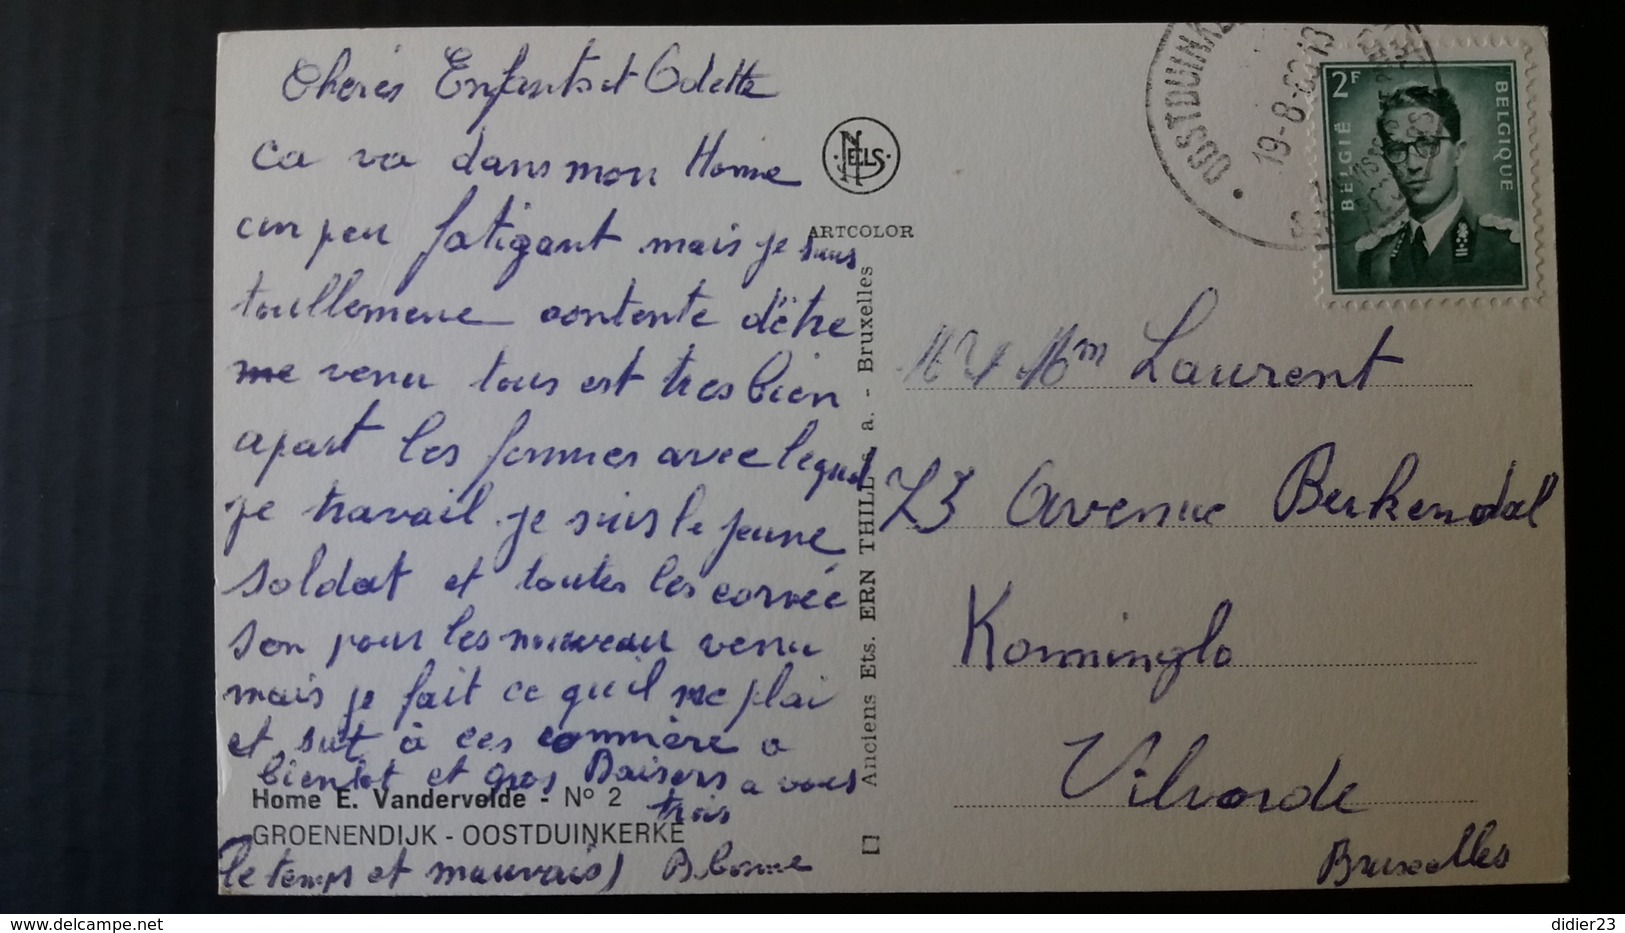 Cherés Enfants et Odette
ca va dans mon Home
un peu fatigant mais je suis
toullemeue contente d'être
me venu tous est tres bien
apart les femmes avec lequel
je travail. je suis le jeune
soldat et toutes les corvée
son pour les nouveau venu
mais je fait ce qu'il me plai
et sut à ces commère a
bientot et gros Baisers a vous
trois
Home E. Vandervelde - N° 2
GROENENDIJK - OOSTDUINKERKE
le temps et mauvais)
NELS
ARTCOLOR
Anciens Ets. ERN THILL s. a. - Bruxelles
OOSTDUINKE
19-8-69-13
2F
BELGIË
BELGIQUE
Mr & Mm Laurent
73 avenue Berkendal
Konninglo
Vilvorde
Bruxelles
didier23